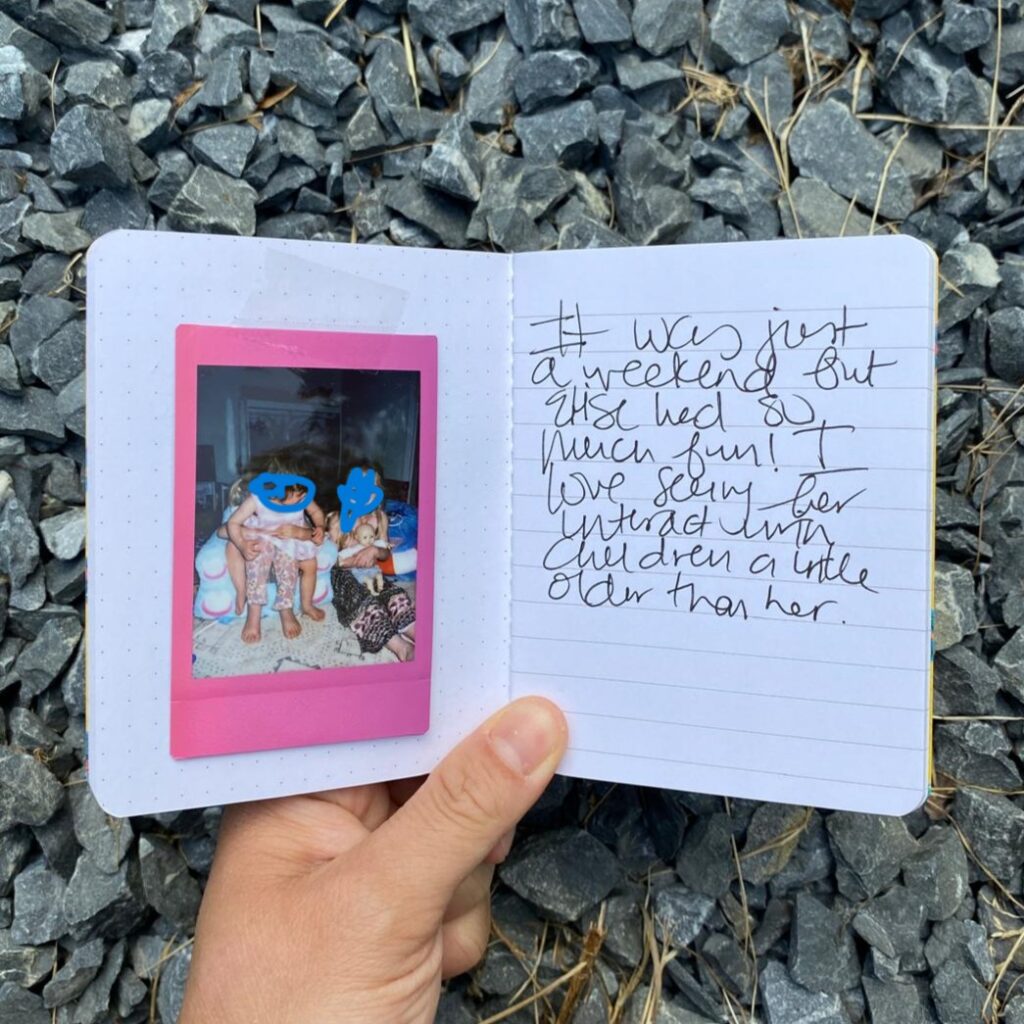 It was just
a weekend but
Elise had so
much fun! I
love seeing her
interact with
children a little
older than her.